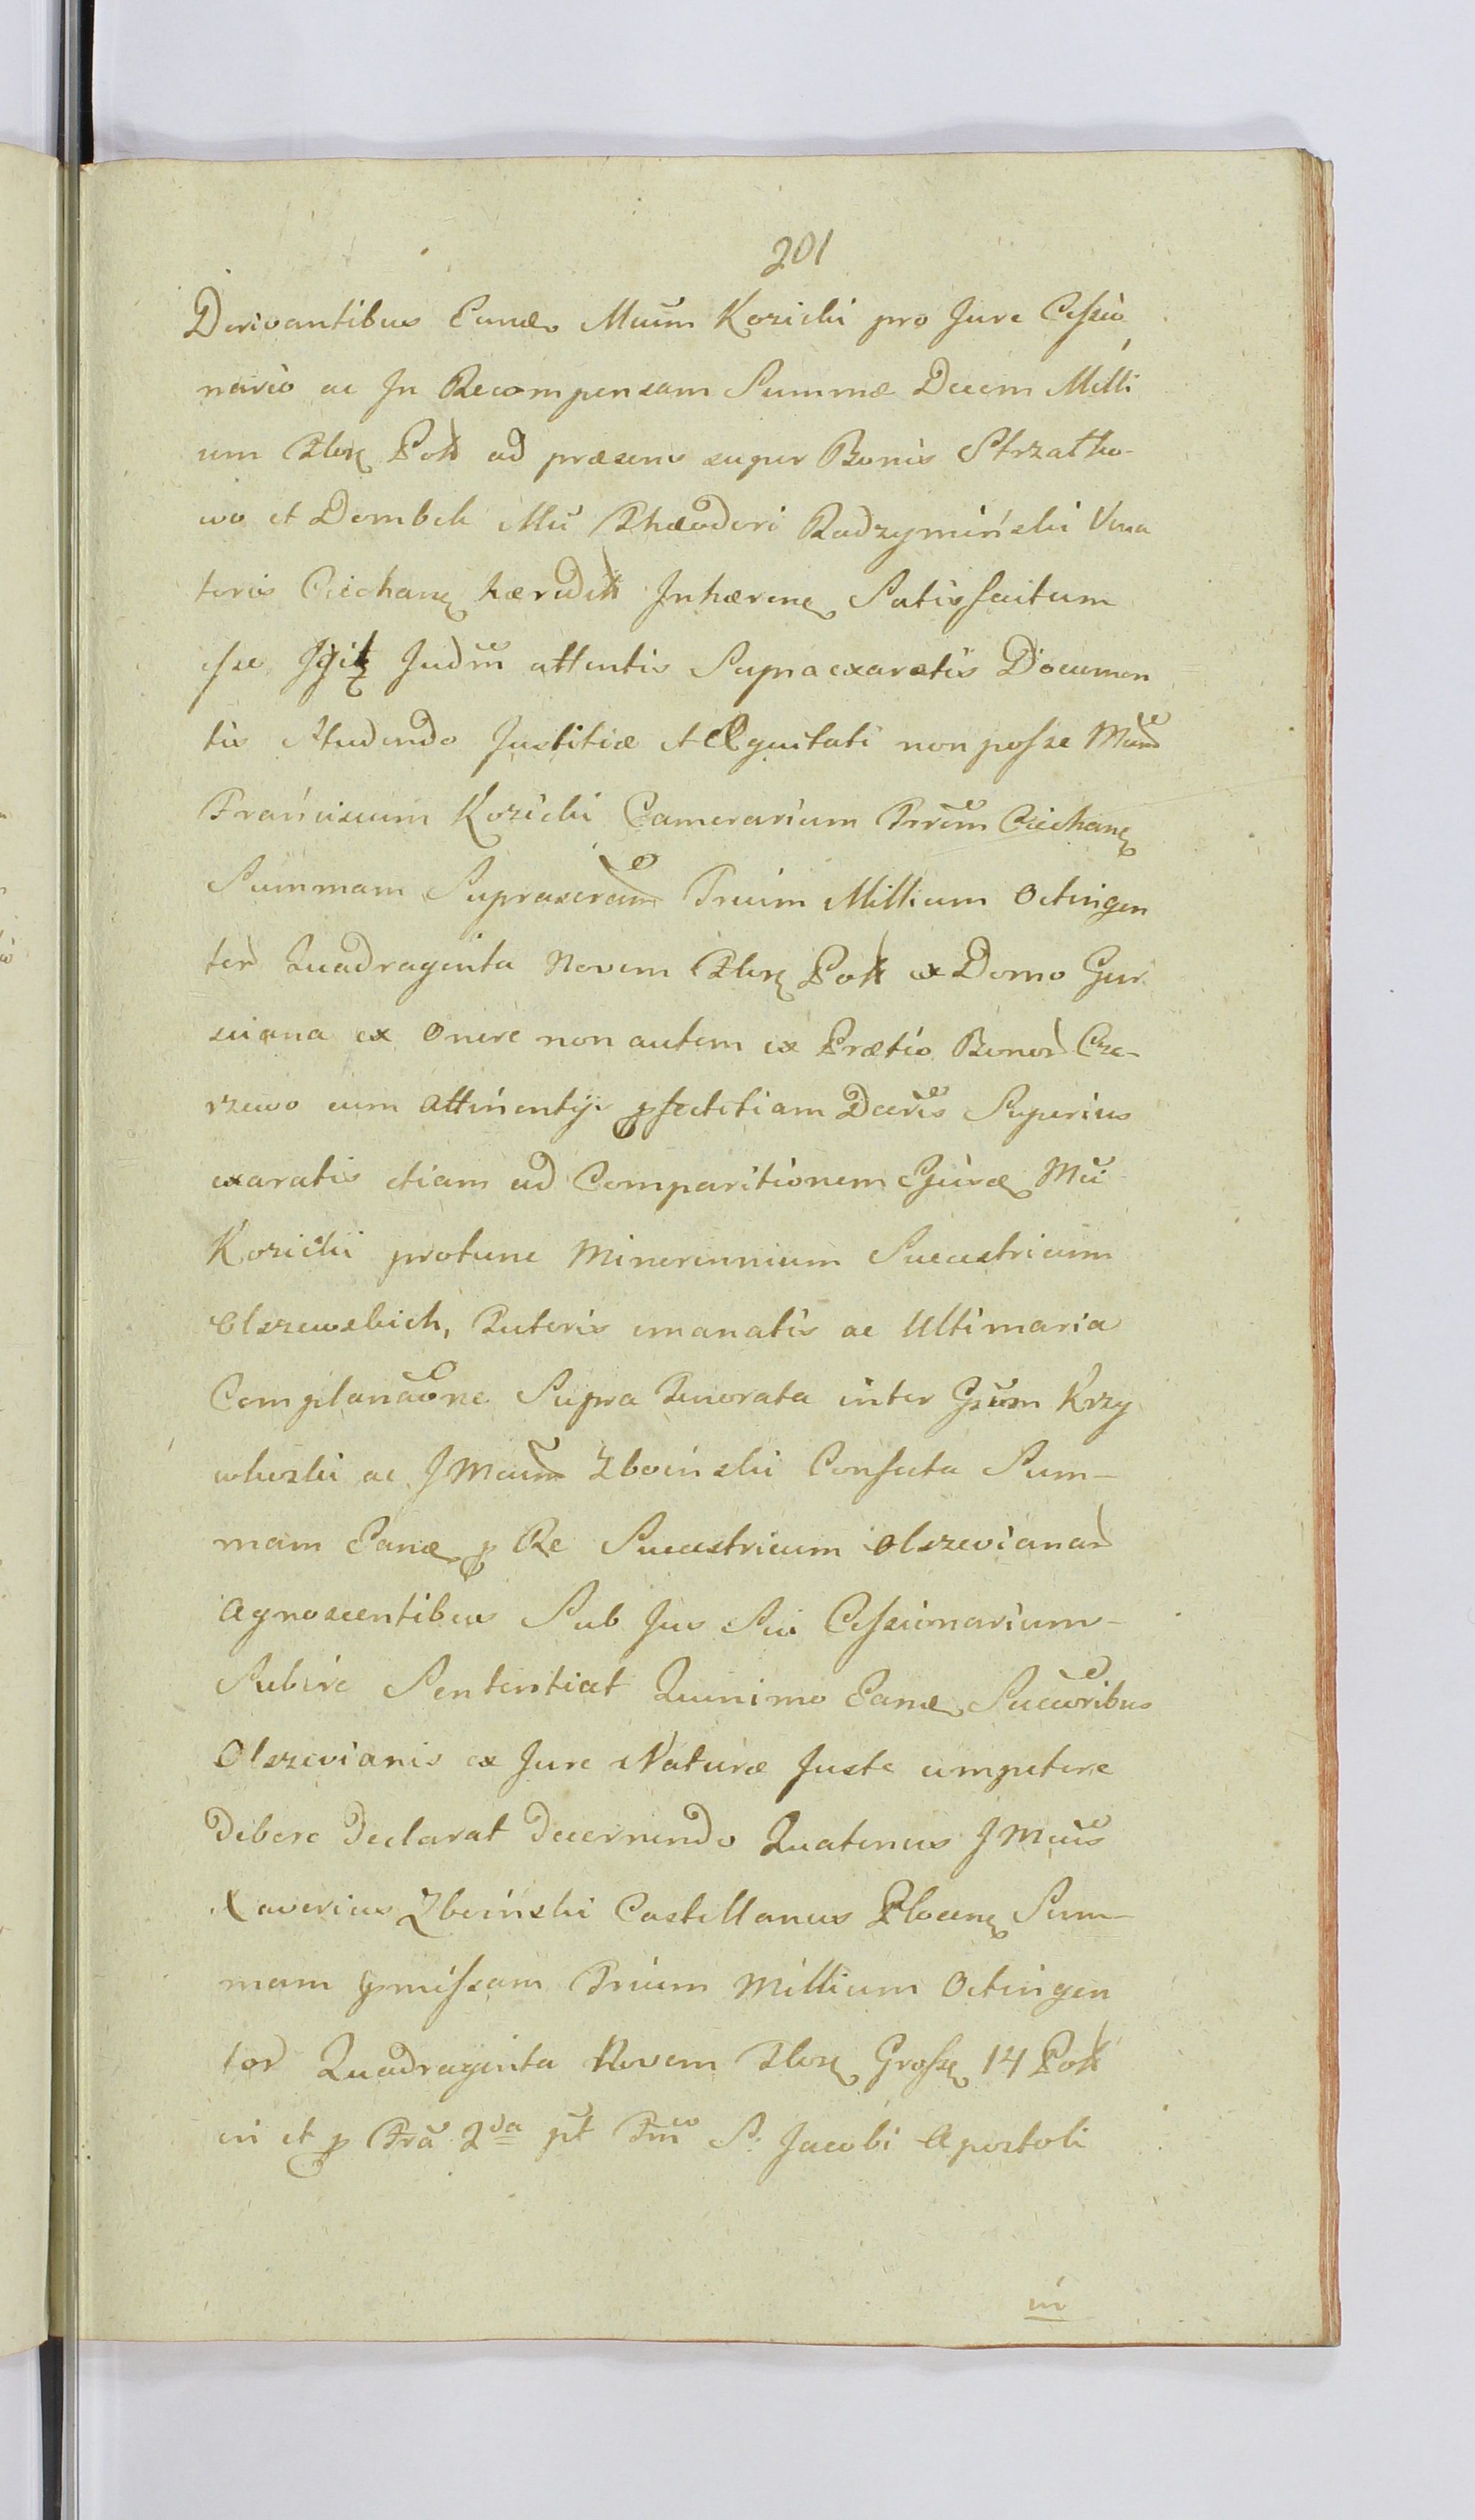 201
Derivantibus Eand Mum Kozicki pro Jure Cessio
nario ac In Recompensam Summæ Decem Milli
um Flor Pol ad præsens super Bonis Strzałko-
wo et Dombek Mu Thæodori Radzymiński Vena
toris Ciechan hæredit Inhæren Satisfactum
esse Igitr Judm attentis Supraexaratis Documen
tis Studendo Justitiæ et Æquitati non posse Mum
Franciscum Kozicki Camerarium Trrem Ciechan
Summam Suprascram Trium Millium Octingen
tor Quadraginta Novem Flor Pol ex Domo Gur
sciana ex Onere non autem ex Prætio Bonor Cze-
rzewo cum Attinentijs pfectitiam Decris Superius
exaratis etiam ad Comparitionem Gsuræ Mu
Kozicki protunc Minorennium Succestricum
Olszewskich, Tutoris emanatis ac Ultimaria
Complanaone Supra Tenorata inter Gsum Krzy
wkoski ac J Mcum Zboinski Confecta Sum-
mam Eand p Re Succestricum Olszevianar
Agnoscentibus Sub Jus Sui Cessionarium
Subire Sententiat Quinimo Eand Succoribus
Olszevianis ex Jure Naturæ Juste competere
Debere Declarat Decernendo Quatenus J Mcus
Xaverius Zboinski Castellanus Plocen Sum-
mam pmissam Trium Millium Octingen
tor Quadraginta Novem Flor Gross 14 Pol
in et p Fra 2da pt Fm S. Jacobi Apostoli
in